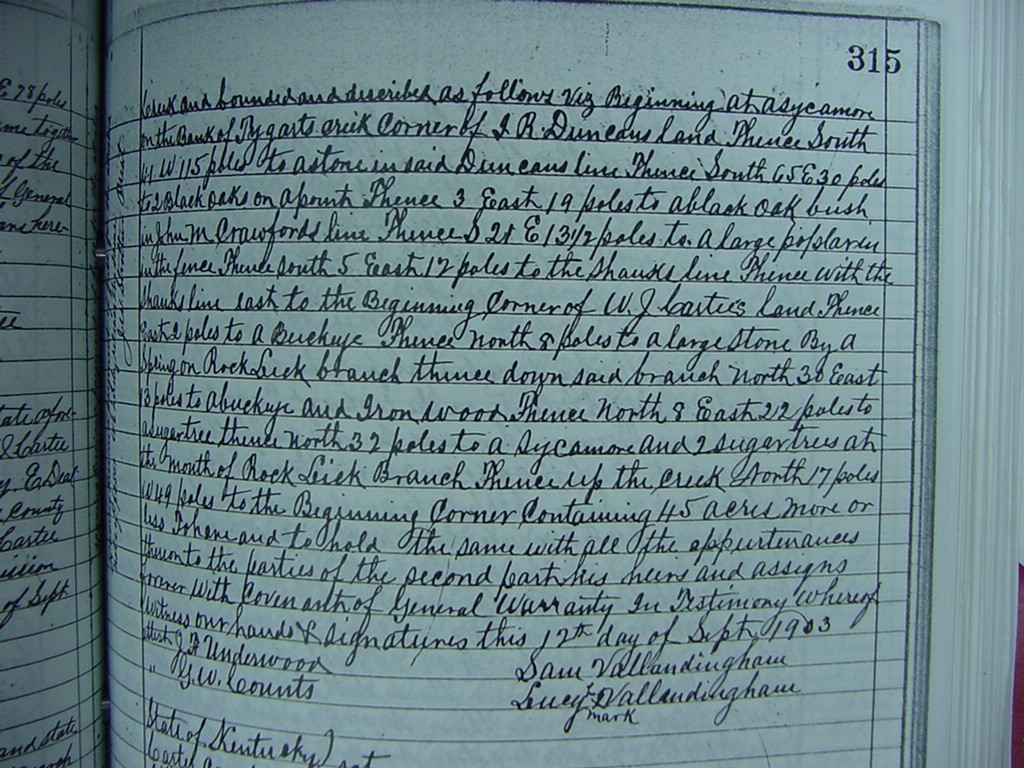 315
Creek and bounded and described as follows Viz Beginning at a sycamore
on the Bank of Tygarts creek Corner of J. R. Duncans land Thence South
41 W 115 poles to a stone in said Duncans line Thence South 65 E 30 poles
to 2 Black oaks on a point Thence 3 East 19 poles to a black oak bush
in Jhn M Crawfords line Thence S 21 E 13 1/2 poles to a large poplar
in the fence Thence South 5 East 12 poles to the Shanks line Thence With the
Shanks line east to the Beginning Corner of W. J. Carties land Thence
East 2 poles to a Buckeye Thence North 8 poles to a large Stone By a
Spring on Rock Lick branch thence down said branch North 30 East
13 poles to a buckeye and Iron Wood Thence North 8 East 22 poles to
a sugartree thence North 32 poles to a Sycamore and 2 sugartrees at
the mouth of Rock Lick Branch Thence up the creek North 17 poles
W 49 poles to the Beginning Corner Containing 45 acres more or
less To have and to hold the same with all the appurtenances
thereon to the parties of the second part his heirs and assigns
forever With Covenant of General Warranty In Testimony Whereof
Witness our hands & signatures this 12th day of Sept 1903
attest J. F. Underwood Sam Vallandingham
" G. W. Counts Lucy x Vallandingham
mark
State of Kentucky)
Carter sct
E 78 poles
of the
of General
State afore
Cartie
E. Deal
County
Cartie
of Sept
and state